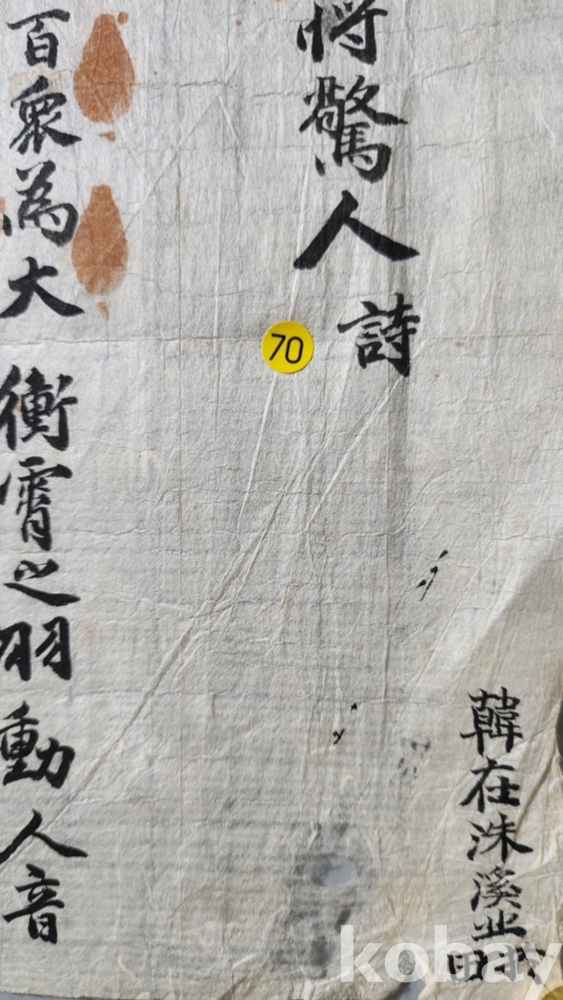 韓在洙溪
將驚人詩
70
百衆為大 衝霄之羽動人音
kobay